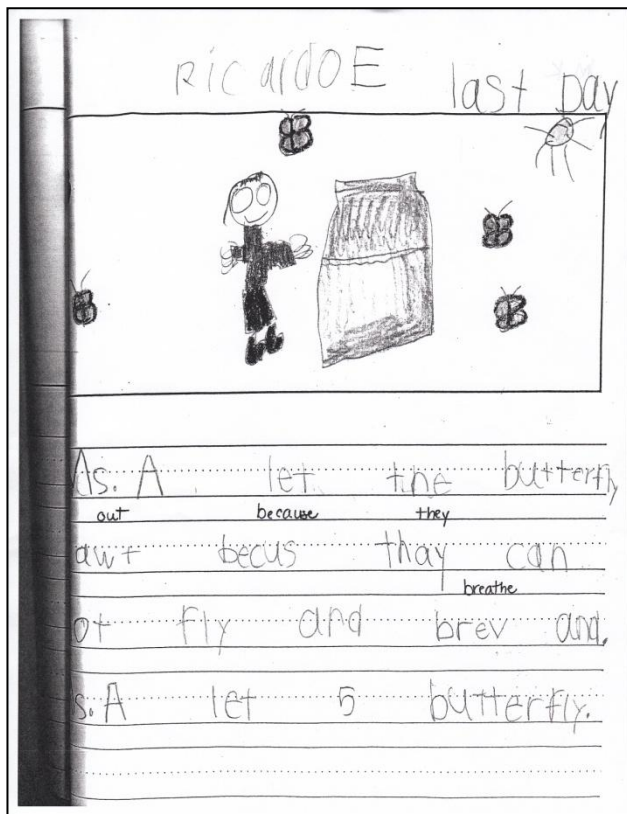 RicardoE last Day
s. A let the butterfly
out because they
awt becus thay can
breathe
ot fly and brev and.
s. A let 5 butterfly.